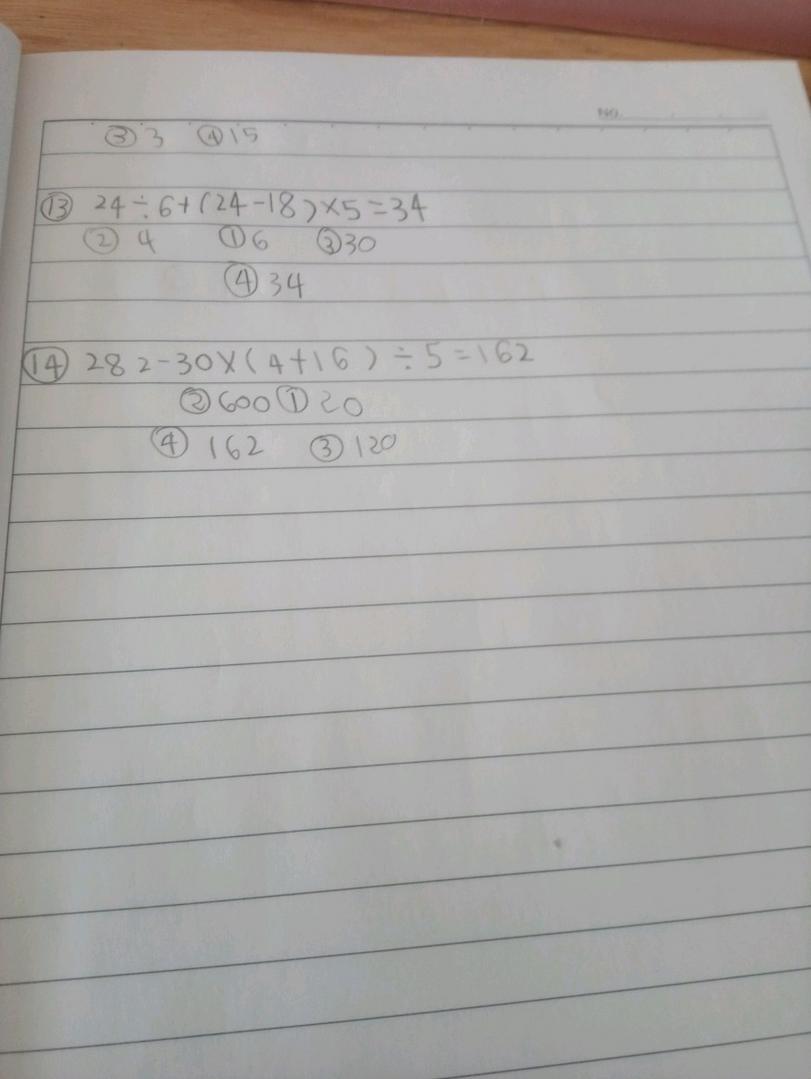 NO.
③ 3 ④ 15
⑬ 24÷6+(24-18)×5=34
② 4 ① 6 ③ 30
④ 34
⑭ 282-30×(4+16)÷5=162
② 600 ① 20
④ 162 ③ 120